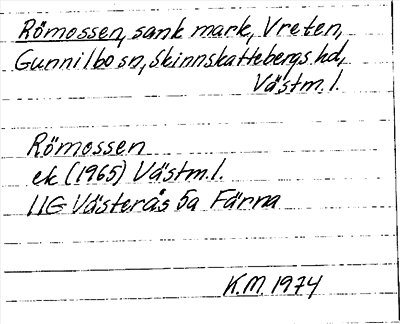 Römossen, sank mark, Vreten,
Gunnilbo sn, Skinnskattebergs hd,
Västm. l.
Römossen
ek (1965) Västm. l.
11G Västerås 5a Färna
K.M. 1974